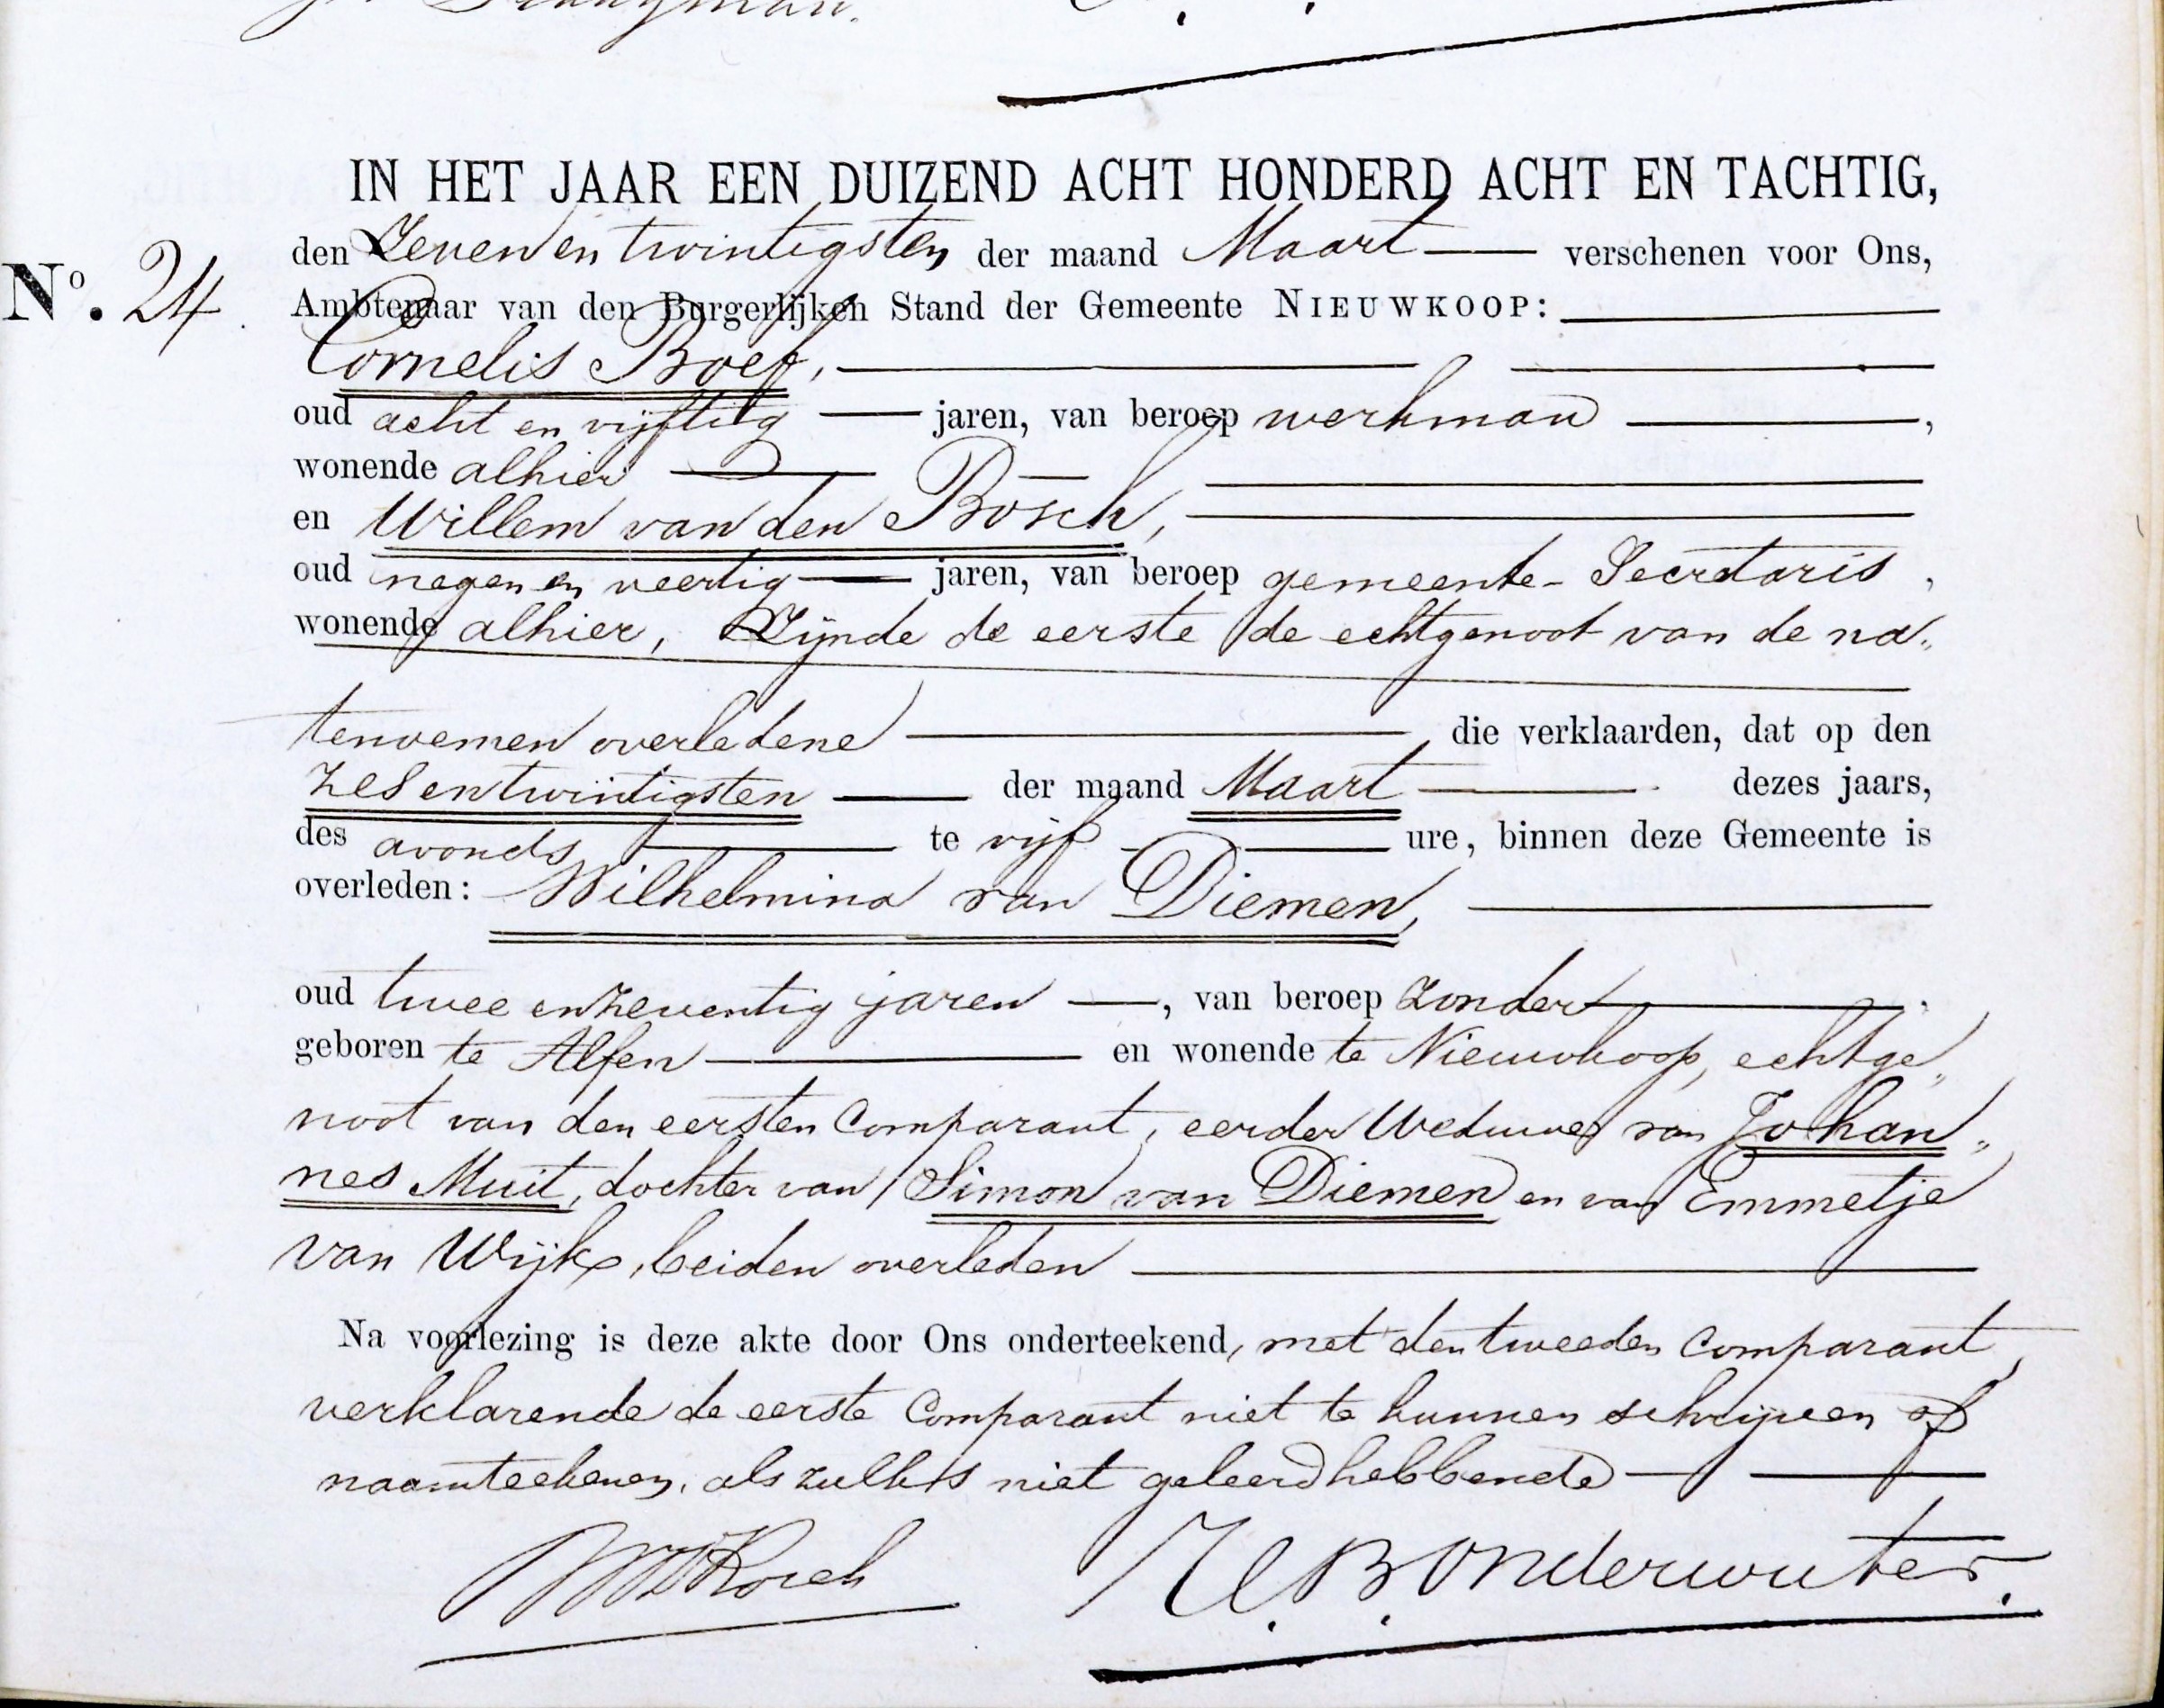 IN HET JAAR EEN DUIZEND ACHT HONDERD ACHT EN TACHTIG,
den Zeven en twintigsten der maand Maart verschenen voor Ons,
No. 24
Ambtenaar van den Burgerlijken Stand der Gemeente NIEUWKOOP:
Cornelis Boef,
oud acht en vijftig jaren, van beroep werkman,
wonende alhier
en Willem van den Bosch,
oud negen en veertig jaren, van beroep gemeente-Secretaris,
wonende alhier, Zijnde de eerste de echtgenoot van de na„
tenoemen overledene die verklaarden, dat op den
zes en twintigsten der maand Maart dezes jaars,
des avonds te vijf ure, binnen deze Gemeente is
overleden: Wilhelmina van Diemen,
oud twee en zeventig jaren, van beroep zonder,
geboren te Alfen en wonende te Nieuwkoop, echtge„
noot van den eersten Comparant, eerder Weduwe van Johan„
nes Muit, dochter van Simon van Diemen en van Emmetje
van Wijk, beiden overleden
Na voorlezing is deze akte door Ons onderteekend, met den tweeden Comparant,
verklarende de eerste Comparant niet te kunnen schrijven of
naamteekenen, als zulks niet geleerd hebbende
Bosch
Onderwater.